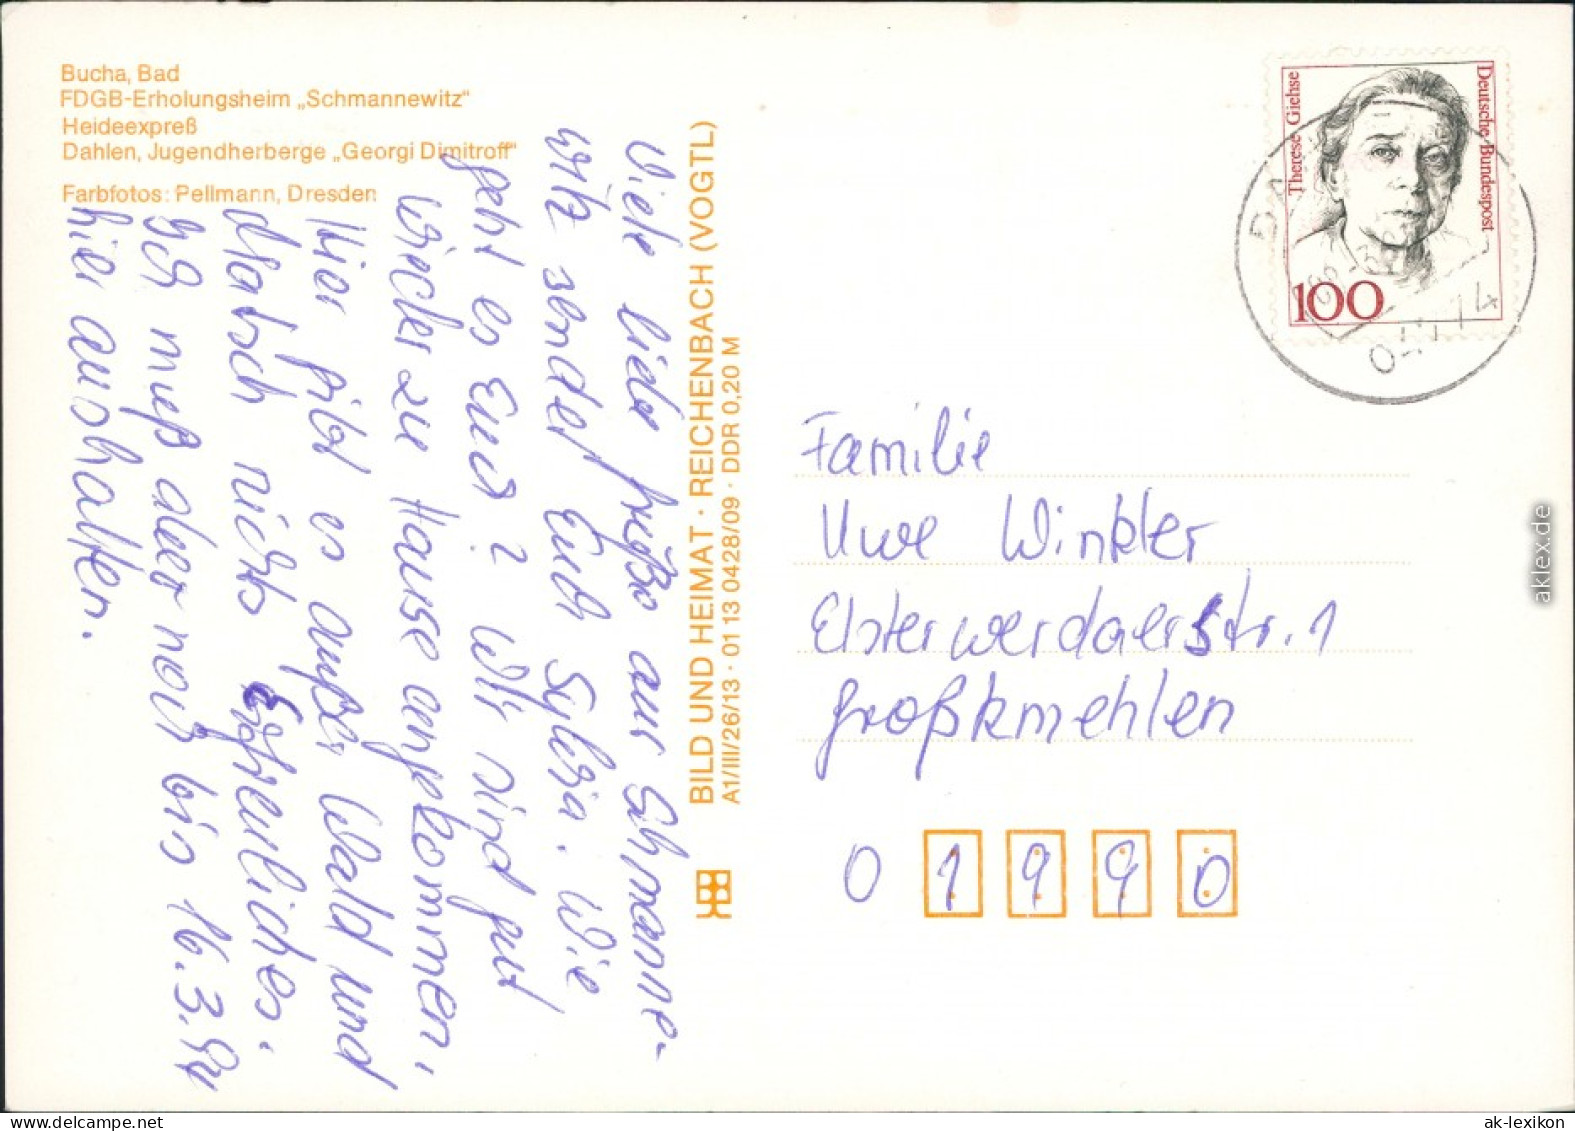 Bucha, Bad
FDGB-Erholungsheim „Schmannewitz“
Heideexpreß
Dahlen, Jugendherberge „Georgi Dimitroff“
Farbfotos: Pellmann, Dresden
Viele liebe Grüße aus Schmanne-
witz sendet Euch Sylvia. Wie
geht es Euch? Wir sind gut
wieder zu Hause angekommen,
Hier gibt es außer Wald und
Matsch nichts Erfreuliches.
Ich muß aber noch bis 16.3.94
hier aushalten.
BILD UND HEIMAT · REICHENBACH (VOGTL)
A1/III/26/13 · 01 13 0428/09 · DDR 0,20 M
Therese Giehse
Deutsche Bundespost
100
04774
Familie
Uwe Winkler
Elsterwerdaerstr. 1
Großkmehlen
0 1 9 9 0
aklex.de
ak-lexikon